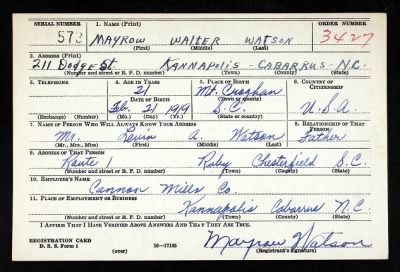 SERIAL NUMBER 1. NAME (Print) ORDER NUMBER
573 MAYROW WALTER WATSON 3427
(First) (Middle) (Last)
2. ADDRESS (Print)
211 Dodge St KANNAPOLIS - CABARRUS - N.C.
(Number and street or R. F. D. number) (Town) (County) (State)
3. TELEPHONE 4. AGE IN YEARS 5. PLACE OF BIRTH 6. COUNTRY OF CITIZENSHIP
21 Mt. Croghan
DATE OF BIRTH (Town or county)
Feb. 21 1919 S.C. U.S.A.
(Exchange) (Number) (Mo.) (Day) (Yr.) (State or country)
7. NAME OF PERSON WHO WILL ALWAYS KNOW YOUR ADDRESS 8. RELATIONSHIP OF THAT PERSON
Mr. Levin A. Watson Father
(Mr., Mrs., Miss) (First) (Middle) (Last)
9. ADDRESS OF THAT PERSON
Route 1 Ruby Chesterfield S.C.
(Number and street or R. F. D. number) (Town) (County) (State)
10. EMPLOYER'S NAME
Cannon Mills Co.
11. PLACE OF EMPLOYMENT OR BUSINESS
Kannapolis Cabarrus N.C.
(Number and street or R. F. D. number) (Town) (County) (State)
I AFFIRM THAT I HAVE VERIFIED ABOVE ANSWERS AND THAT THEY ARE TRUE.
REGISTRATION CARD
D. S. S. Form 1 (over) 16—17105 Mayrow Watson
(Registrant's signature)